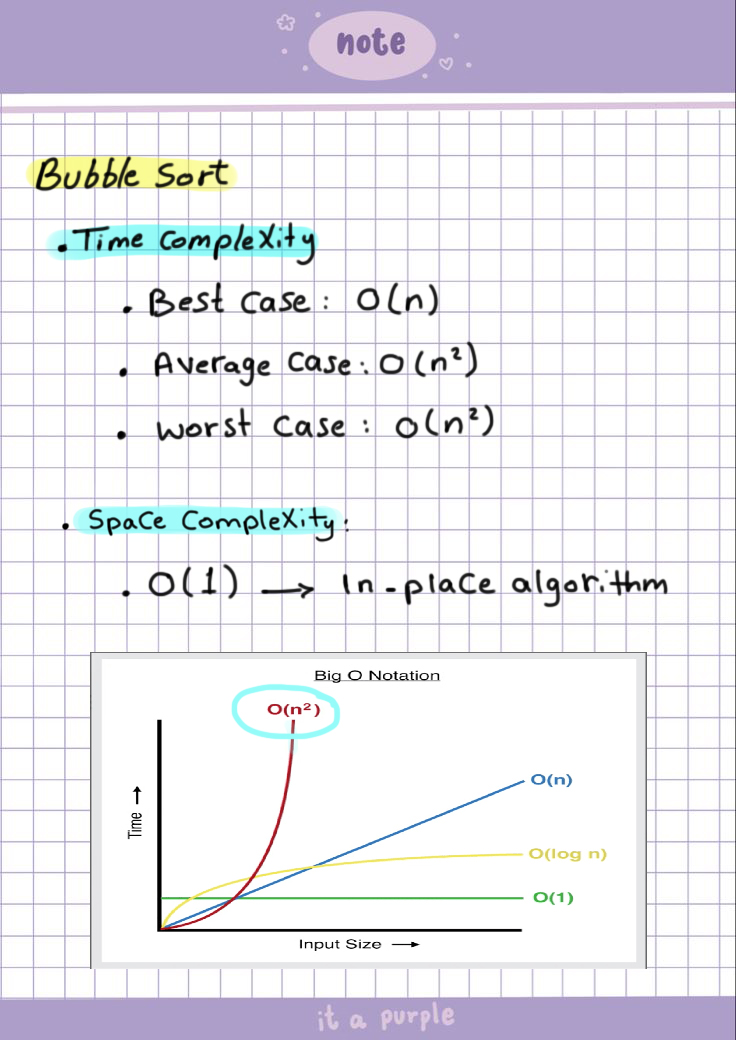 note
Bubble Sort
• Time Complexity
• Best Case: O(n)
• Average Case: O(n²)
• Worst Case: O(n²)
• Space Complexity:
• O(1) → In-place algorithm
Big O Notation
O(n²)
O(n)
O(log n)
O(1)
Time →
Input Size →
it a purple